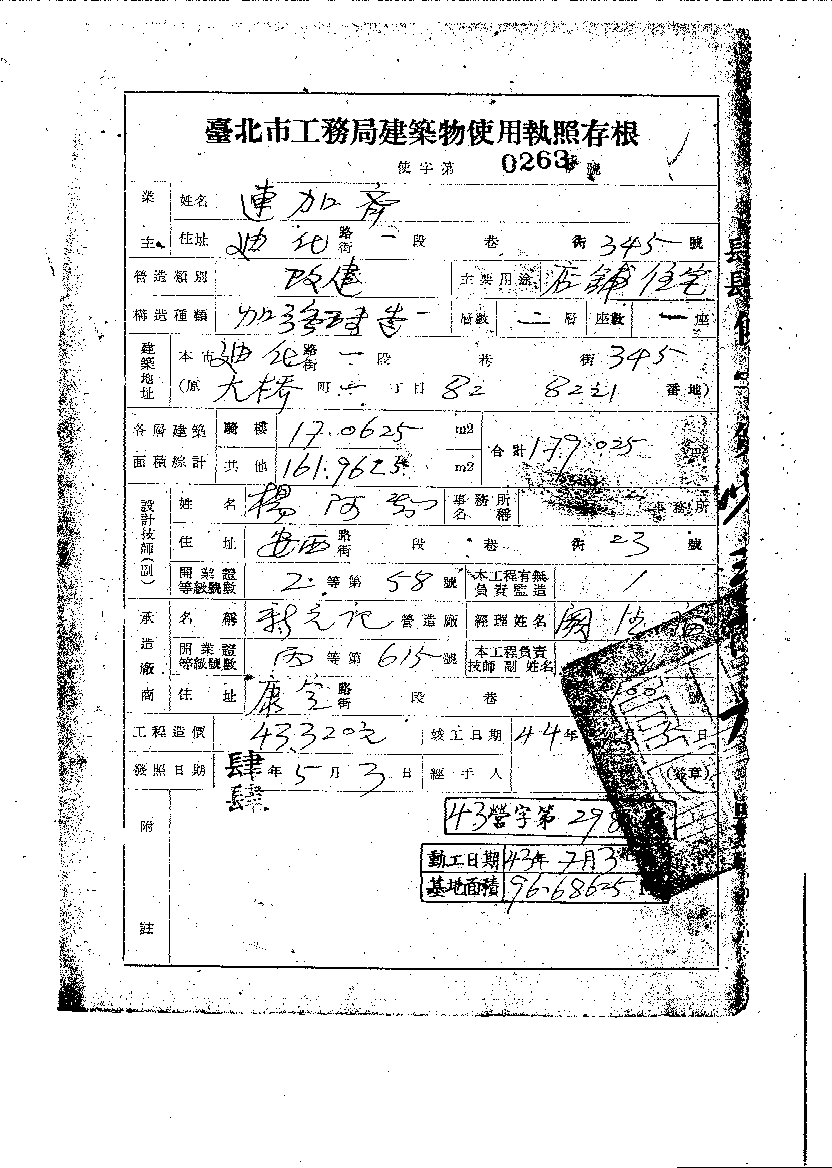 臺北市工務局建築物使用執照存根
使字第 0263 號
業主 姓名 連加齊
住址 迪化路街一段 巷 衖 345 號
營造類別 改建 主要用途 店鋪住宅
構造種類 加強磚造 層數 二層 座數 一座
建築地址 本市 迪化路街一段 巷 衖 345
(原 大橋町一丁目 82 82之1 番地)
各層建築面積總計 騎樓 17.0625 m2 合計 179.025
其他 161.9625 m2
設計技師(副) 姓名 楊阿 事務所名稱 事務所
住址 安西路街 段 巷 衖 23 號
開業證等級號數 2 等第 58 號 本工程有無負責監造
承造廠商 名稱 新元記 營造廠 經理姓名
開業證等級號數 丙等第 615 號 本工程負責技師副姓名
住址 康定路街 段 巷 號
工程造價 43,320元 竣工日期 44年 日
發照日期 肆肆年5月3日 經手人 (簽章)
附註
43營字第 298
動工日期 43年7月3
基地面積 96.68625